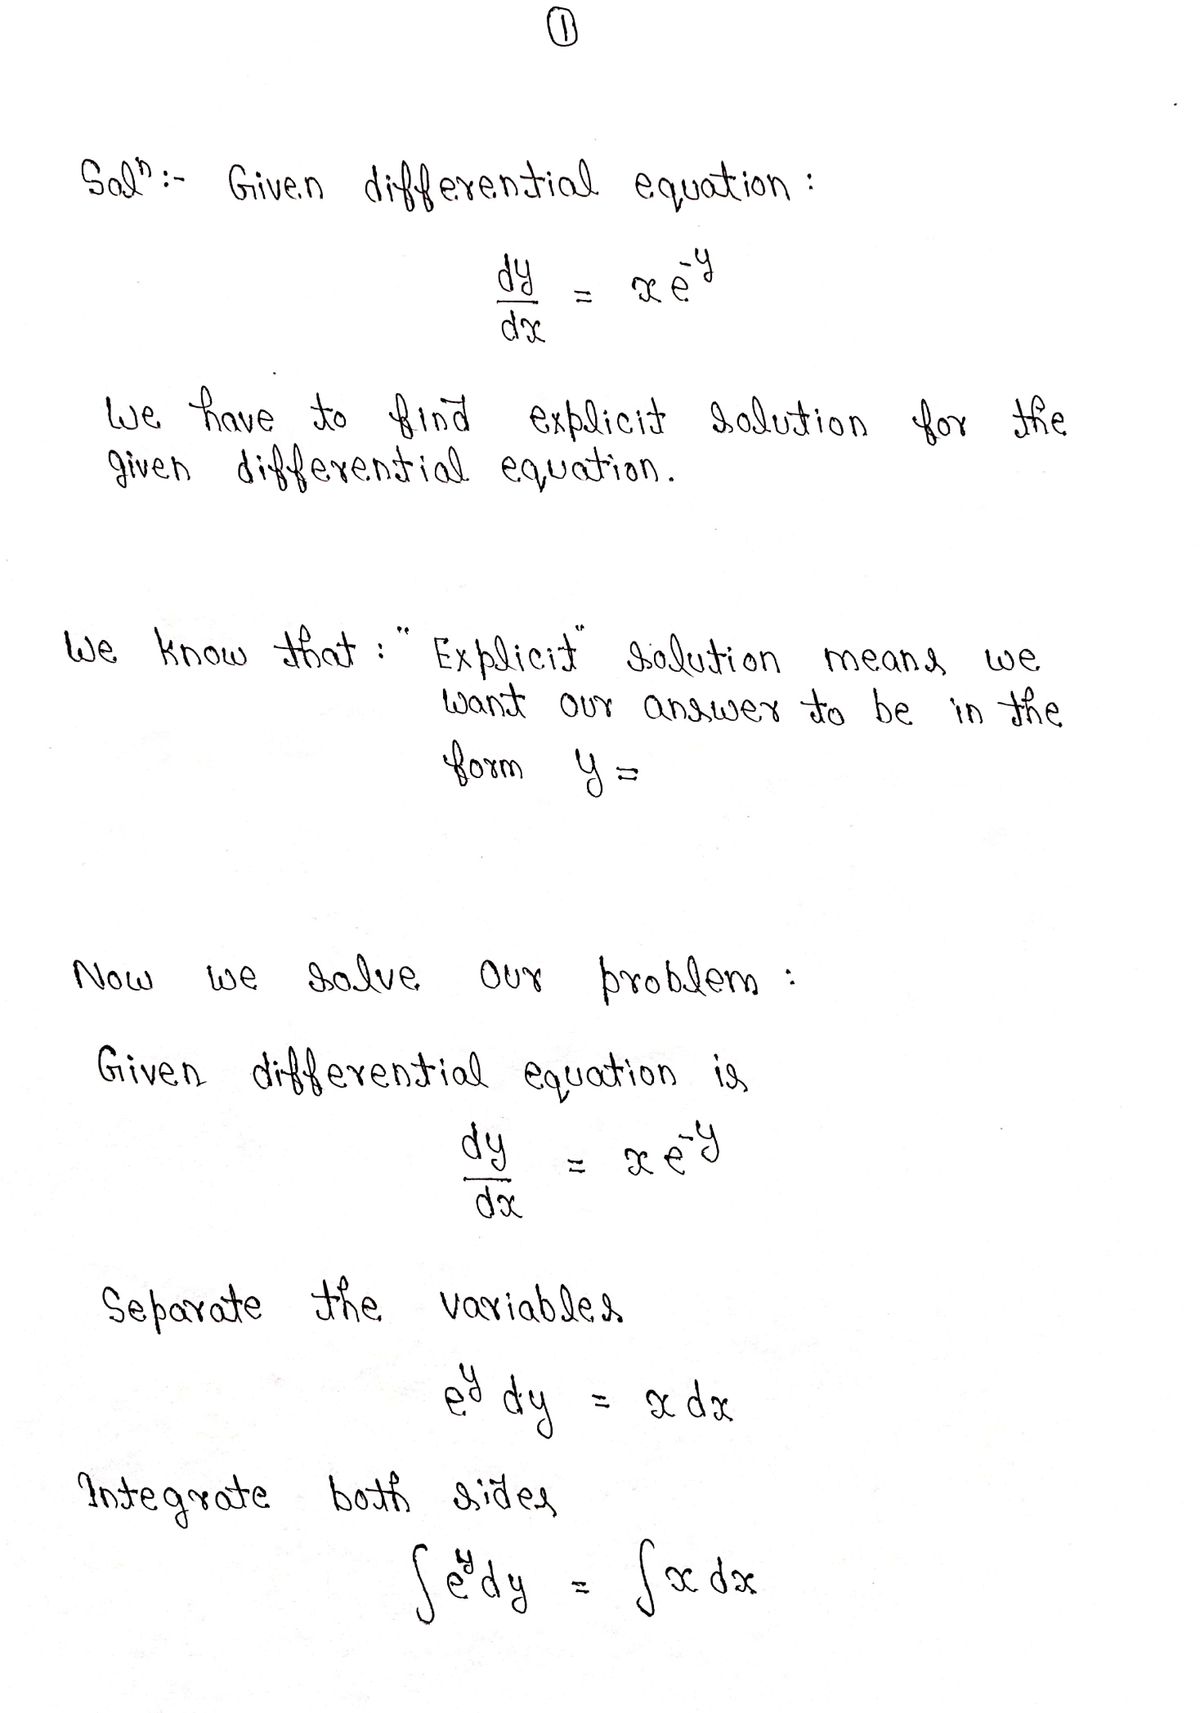 ①
Solⁿ:- Given differential equation :
dy/dx = x e^-y
We have to find explicit solution for the
given differential equation.
We know that : " Explicit" solution means we
want our answer to be in the
form y =
Now we solve our problem :
Given differential equation is
dy/dx = x e^-y
Separate the variables
e^y dy = x dx
Integrate both sides
∫ e^y dy = ∫ x dx